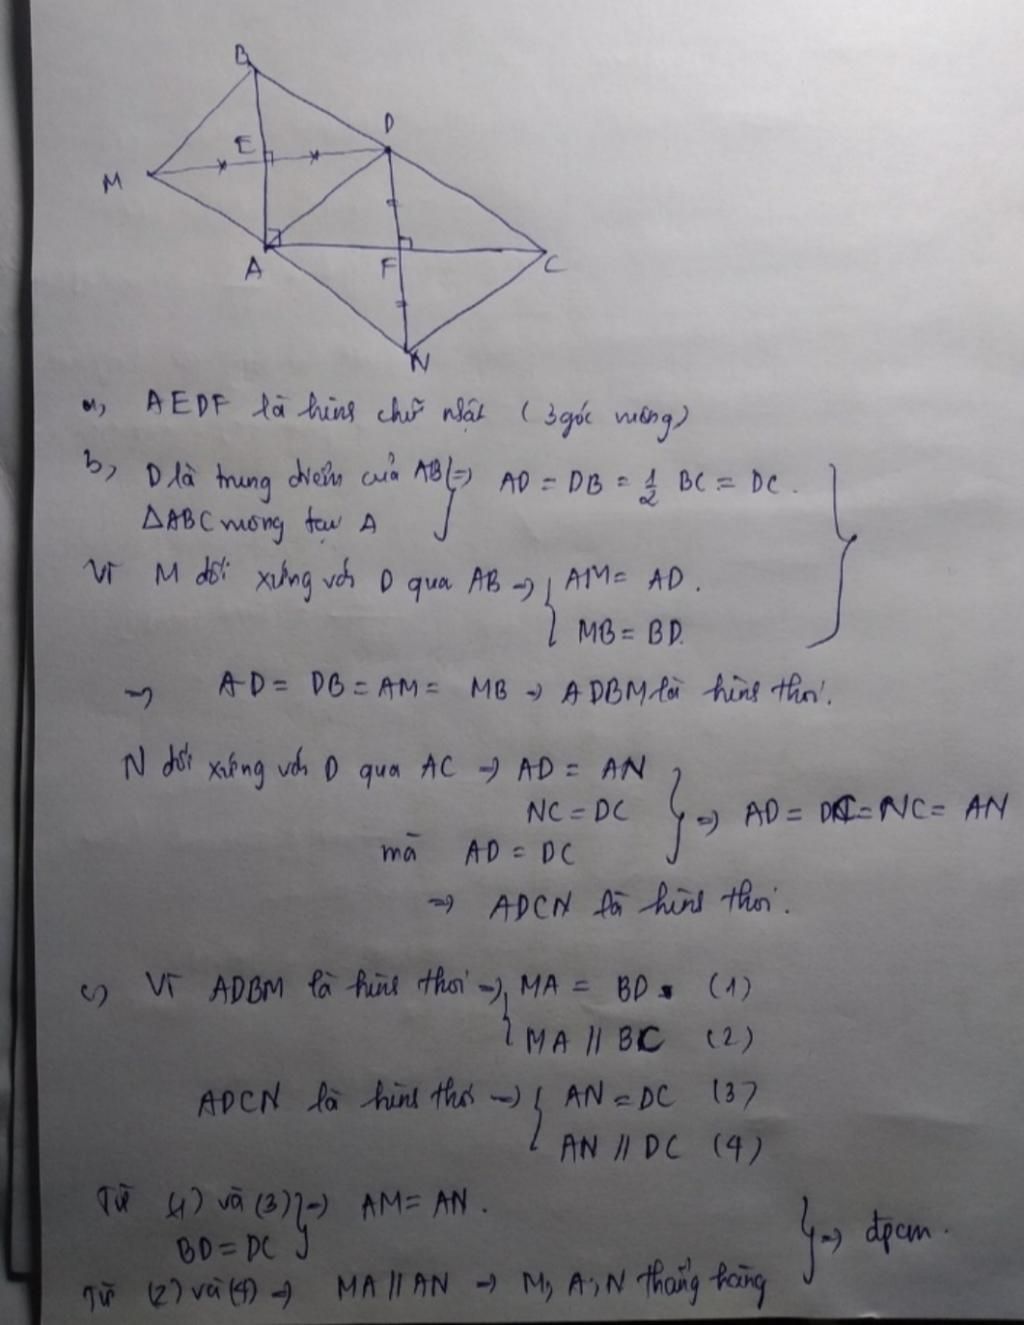 B
D
E
M
A
F
C
N
a, AEDF là hình chữ nhật (3 góc vuông)
b, D là trung điểm của AB } => AD = DB = 1/2 BC = DC.
ΔABC vuông tại A
Vì M đối xứng với D qua AB => { AM = AD.
MB = BD.
=> AD = DB = AM = MB => ADBM là hình thoi.
N đối xứng với D qua AC => AD = AN
NC = DC } => AD = DC = NC = AN
mà AD = DC
=> ADCN là hình thoi.
c, Vì ADBM là hình thoi => { MA = BD. (1)
MA // BC (2)
ADCN là hình thoi => { AN = DC (3)
AN // DC (4)
Từ (1) và (3) } => AM = AN.
BD = DC
} => đpcm.
Từ (2) và (4) => MA // AN => M, A, N thẳng hàng